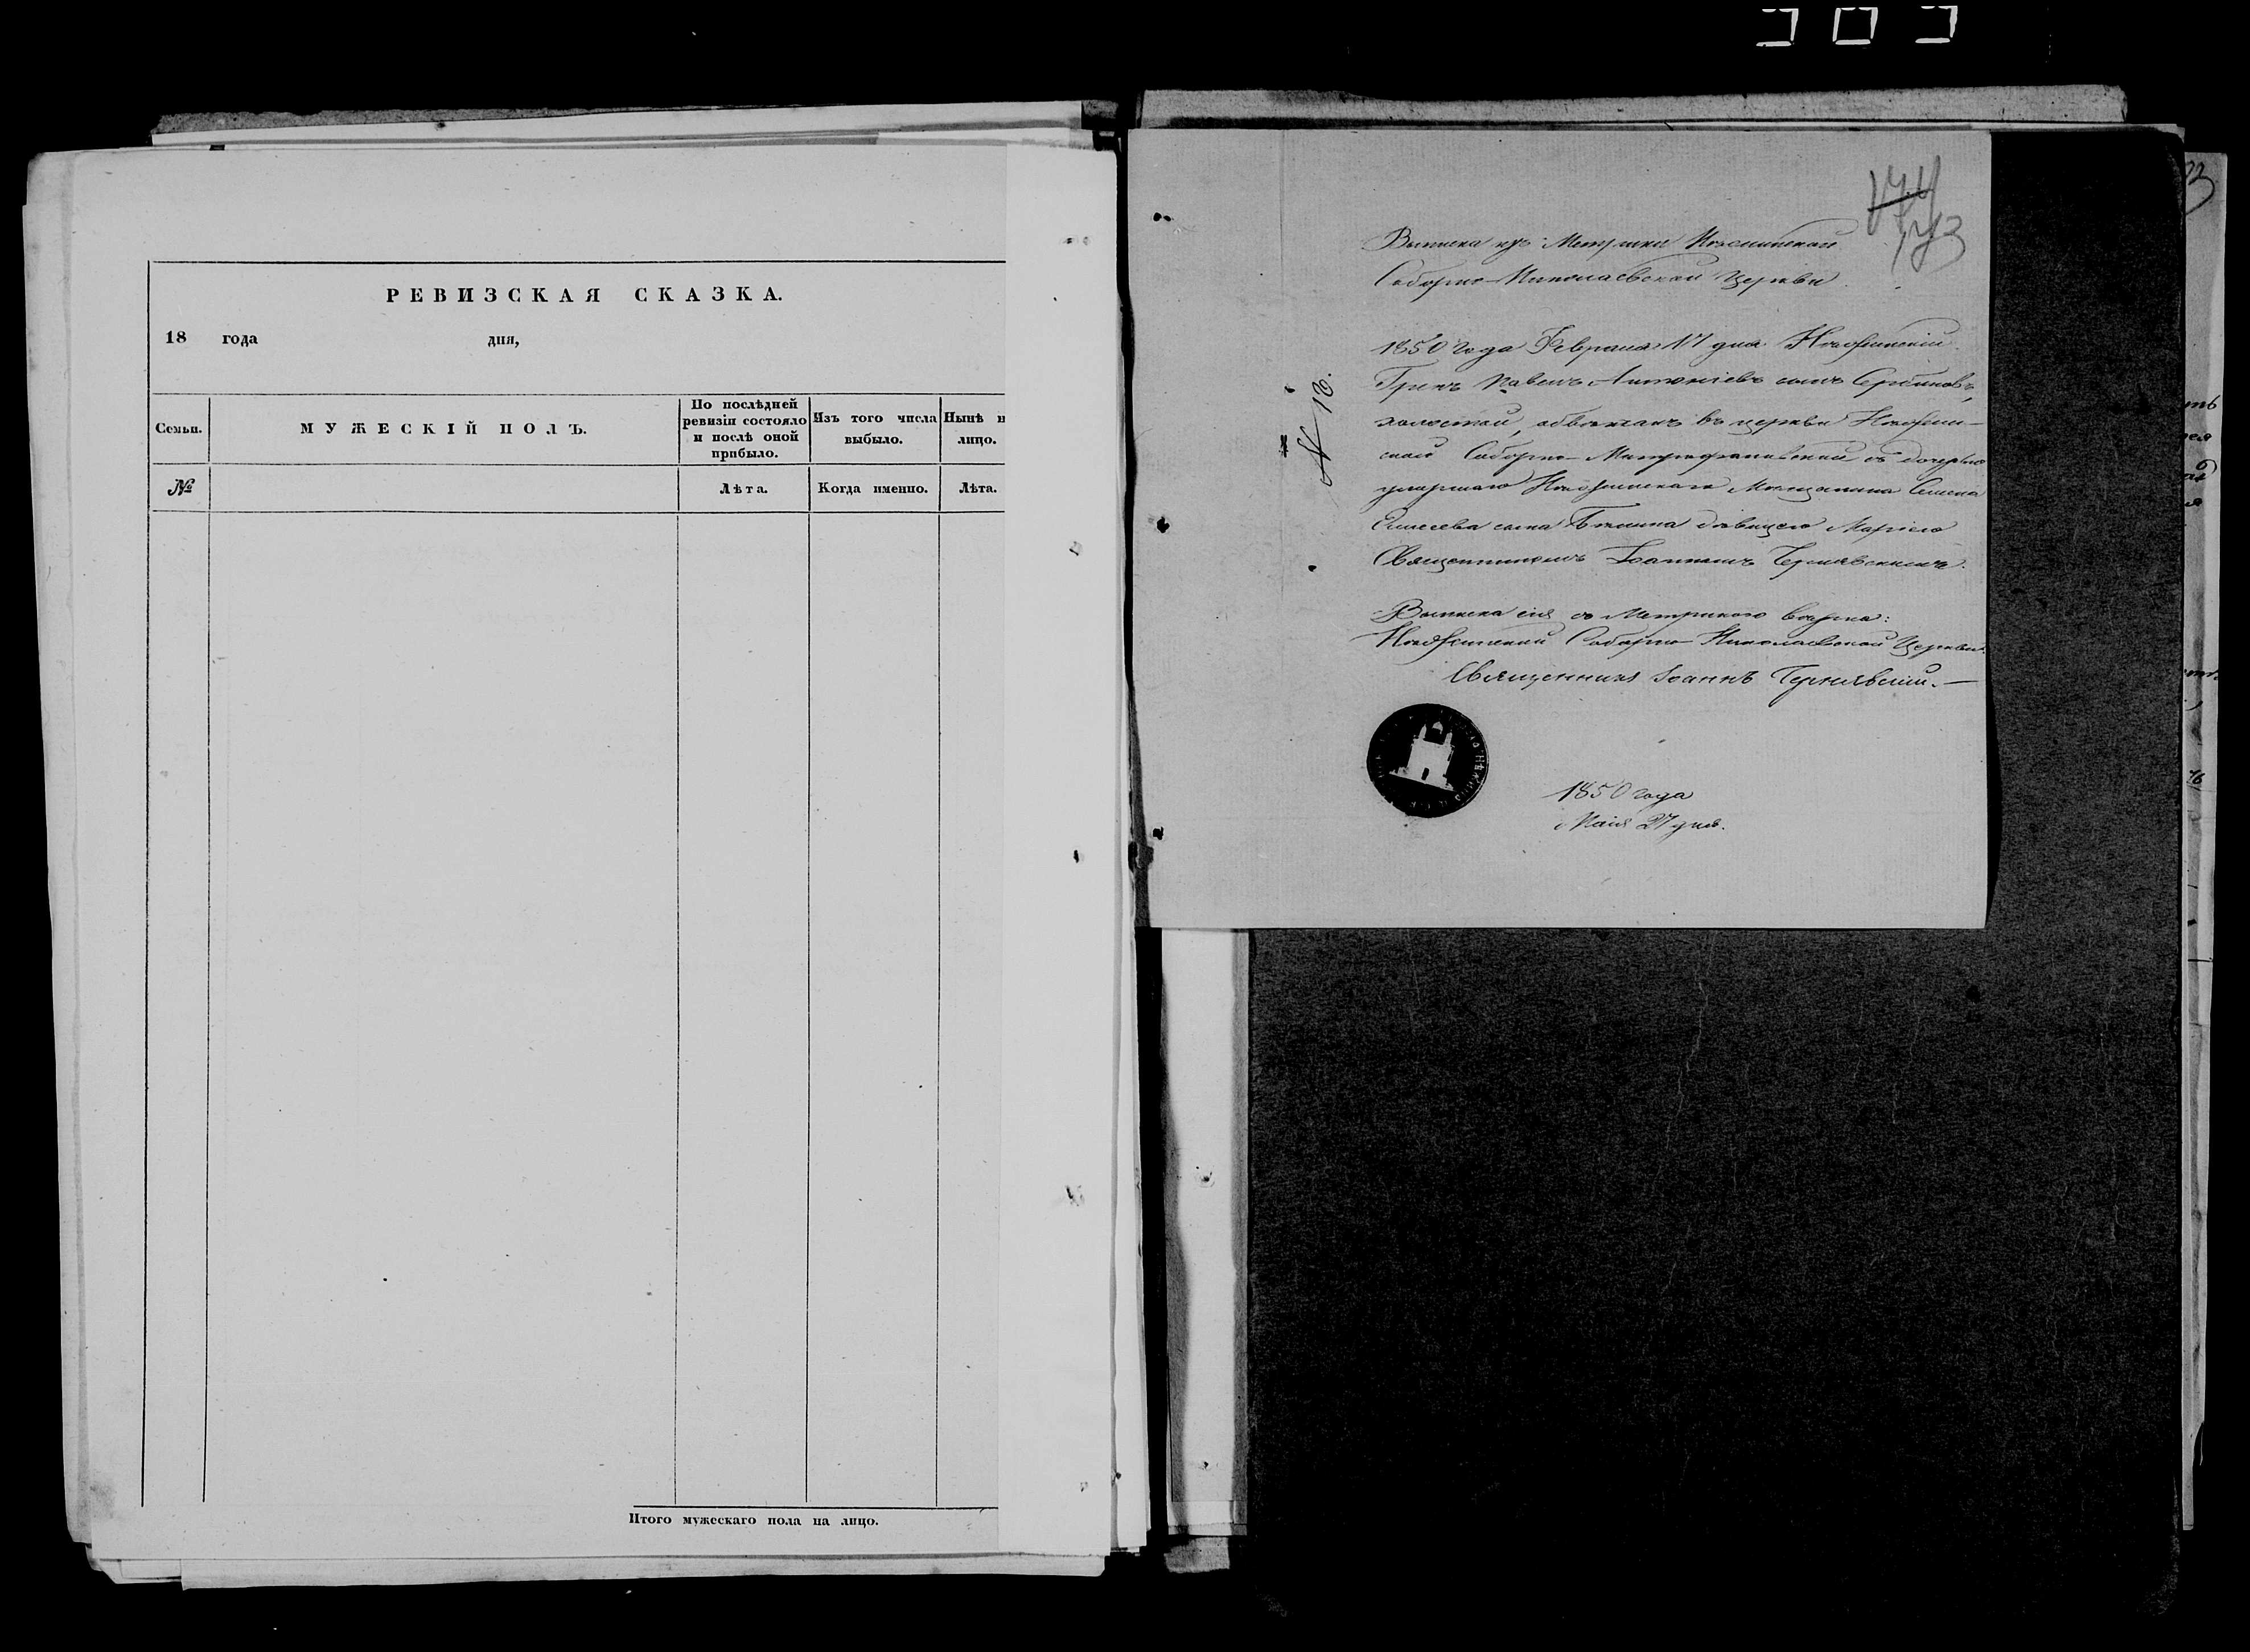 РЕВИЗСКАЯ СКАЗКА.
18 года дня,
Семьи.
МУЖЕСКІЙ ПОЛЪ.
По послѣдней
ревизіи состояло
и послѣ оной
прибыло.
Изъ того числа
выбыло.
Нынѣ н
лицо.
№
Лѣта.
Когда именно.
Лѣта.
Итого мужескаго пола на лицо.
Выписка изъ Метрики Нѣжинской
Соборно-Николаевской Церкви
№ 18.
1850 года Февраля 17 дня Нѣжинскій
Грекъ Павелъ Антоніевъ сынъ
холостой, обвѣнчанъ въ церкви Нѣжин-
ской Соборно- съ дочерью
умершаго Нѣжинскаго Мѣщанина Семена
сына дѣвицею Маріею
Священникомъ Іоанномъ Чернявскимъ.
Выписка сія съ Метрикою вѣрна:
Нѣжинской Соборно Николаевской Церкви
Священникъ Іоаннъ Чернявскій.—
1850 года
Маія 27 дня.